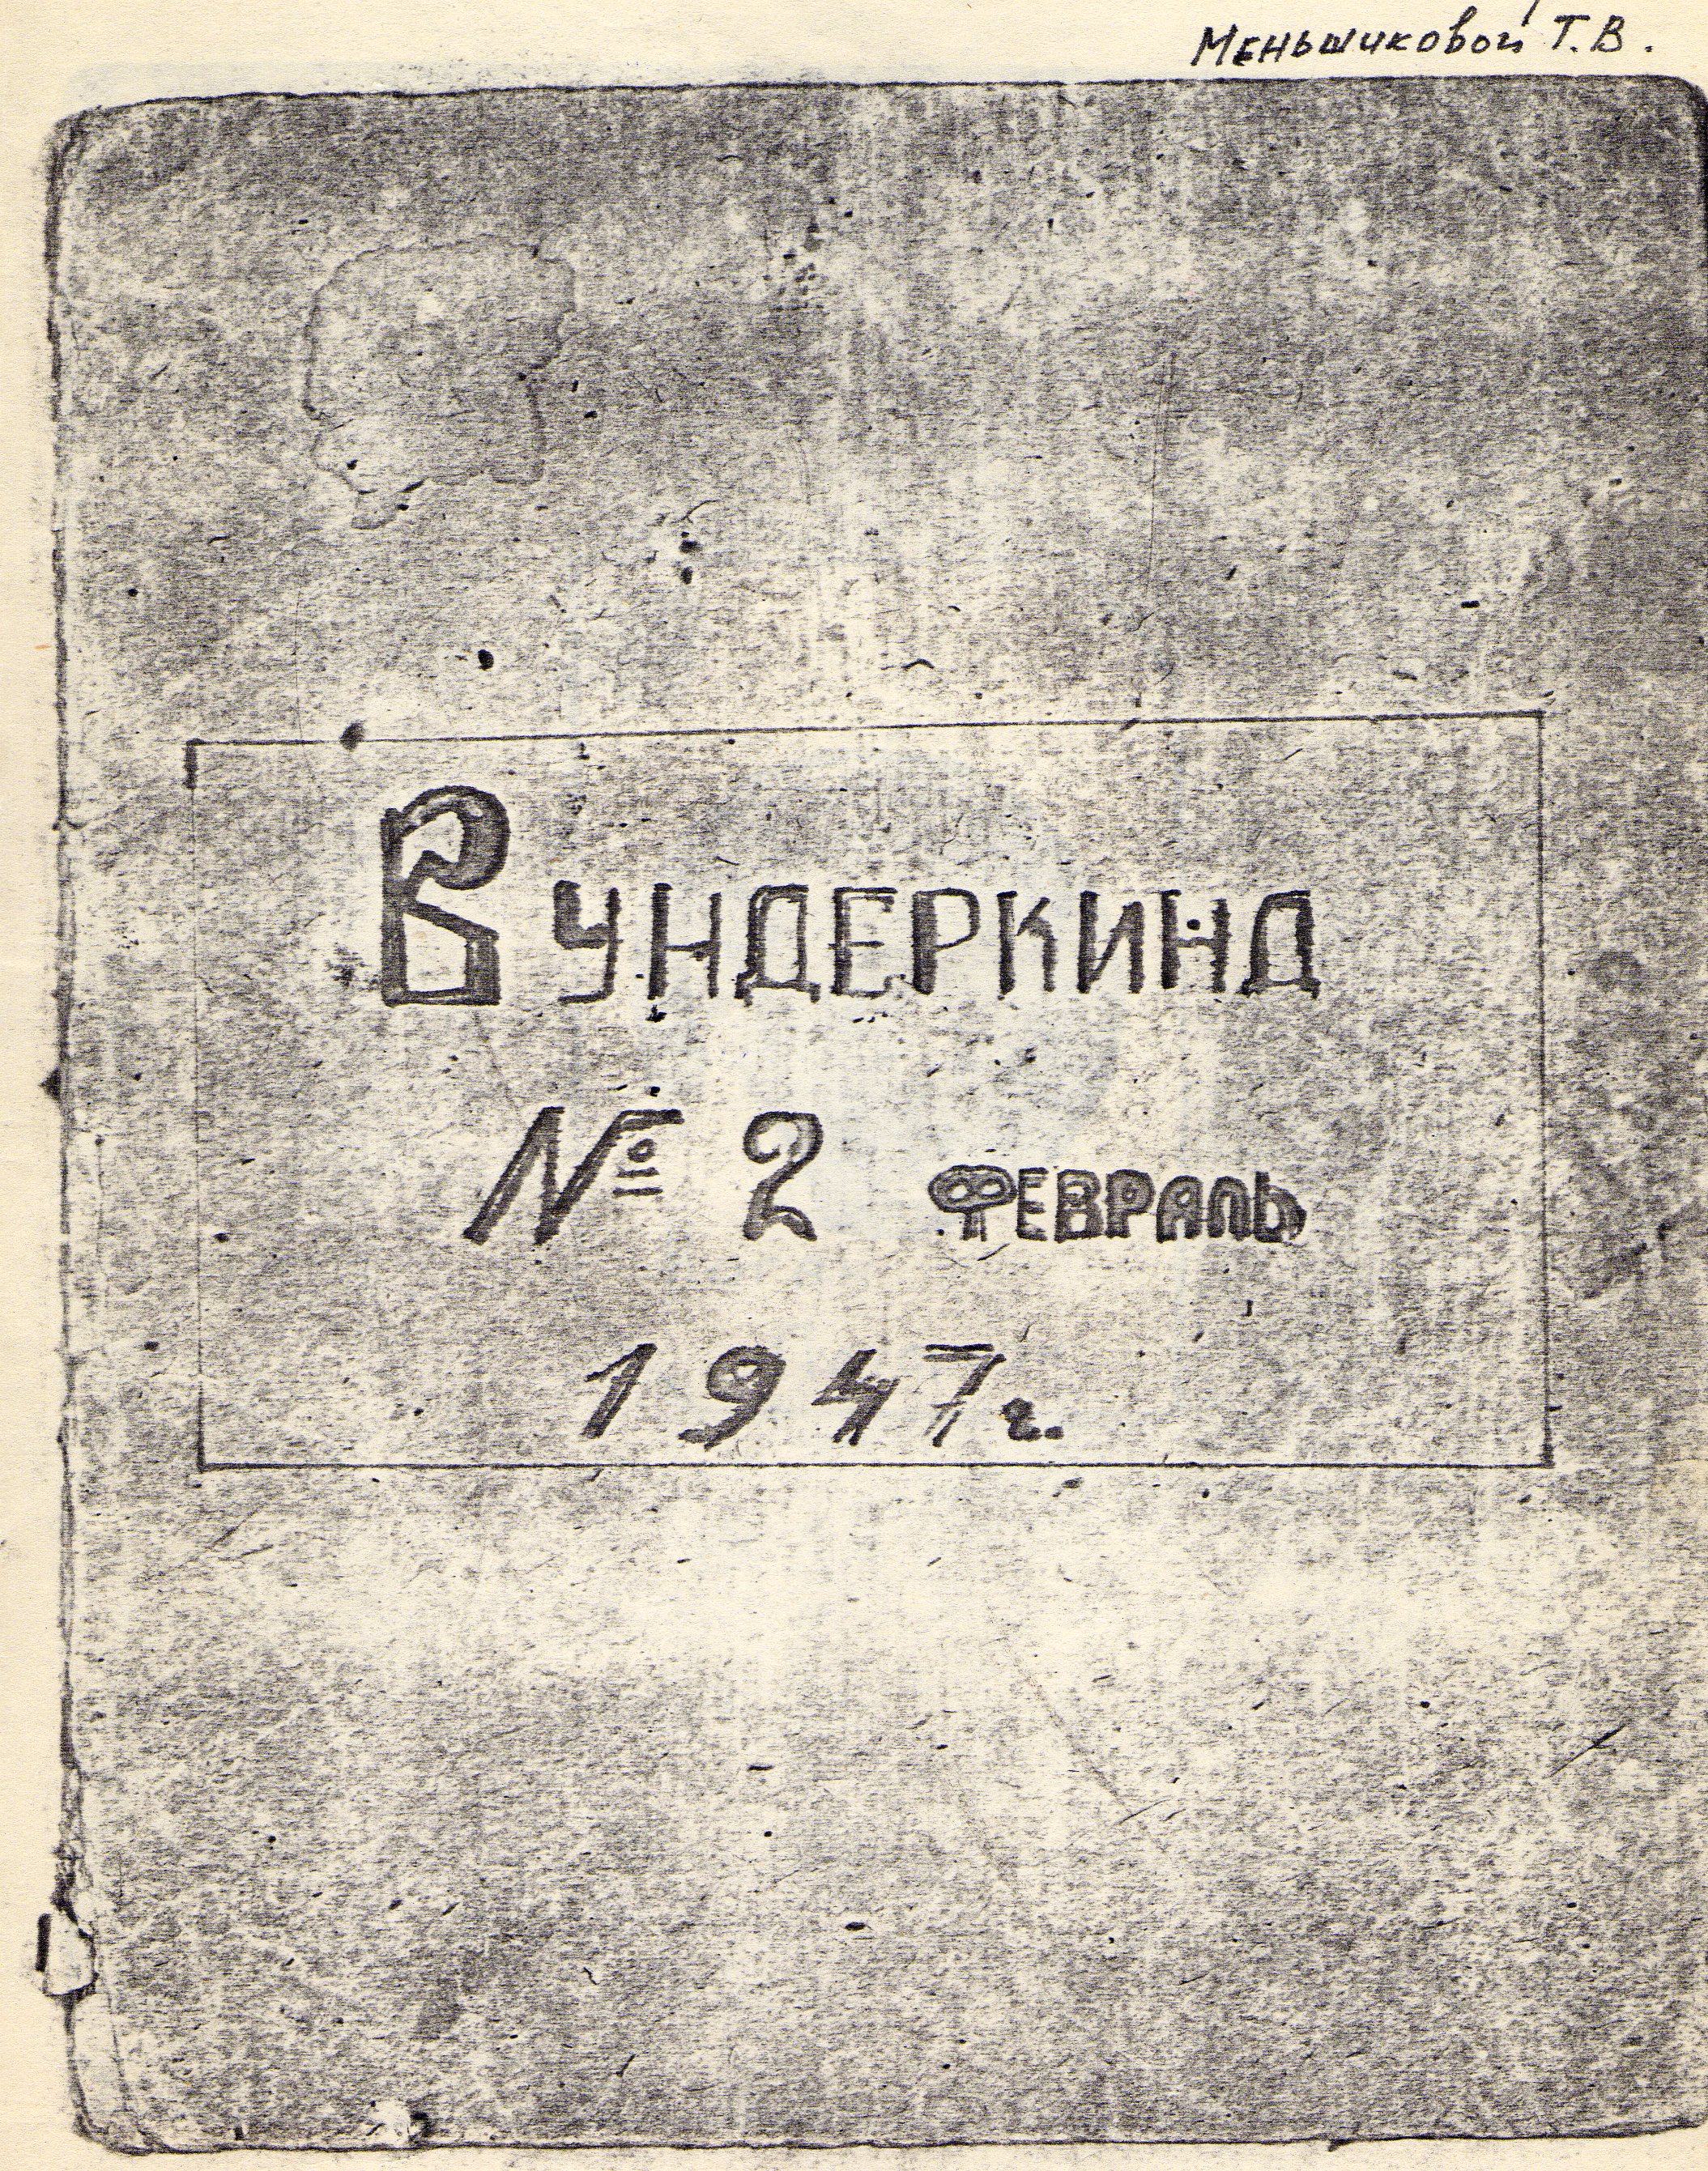 Меньшиковой Т.В.
Вундеркинд
№ 2 февраль
1947г.